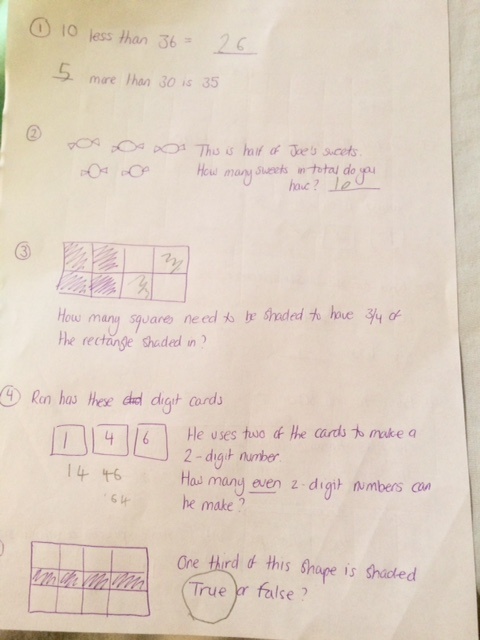 ① 10 less than 36 = 26
5 more than 30 is 35
②
This is half of Joe's sweets.
How many sweets in total do you
have? 10
③
How many squares need to be shaded to have 3/4 of
the rectangle shaded in?
④ Ron has these digit cards
1 4 6
He uses two of the cards to make a
2-digit number.
14 46
How many even 2-digit numbers can
64
he make?
One third of this shape is shaded
True or false?